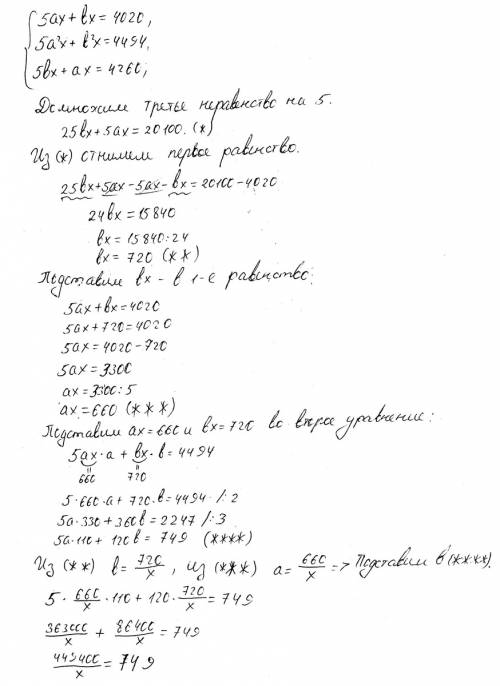 5ax + bx = 4020,
5a²x + b²x = 4494,
5bx + ax = 4260,
Домножим третье неравенство на 5.
25bx + 5ax = 20100. (*)
Из (*) отнимем первое равенство.
25bx + 5ax - 5ax - bx = 20100 - 4020
24bx = 15840
bx = 15840 : 24
bx = 720 (**)
Подставим bx - в 1-е равенство:
5ax + bx = 4020
5ax + 720 = 4020
5ax = 4020 - 720
5ax = 3300
ax = 3300 : 5
ax = 660 (***)
Подставим ax = 660 и bx = 720 во второе уравнение:
5ax · a + bx · b = 4494
660 720
5 · 660 · a + 720 · b = 4494 /: 2
5a · 330 + 360b = 2247 /: 3
5a · 110 + 120b = 749 (****)
Из (**) b = 720/x, из (***) a = 660/x => Подставим в (****).
5 · 660/x · 110 + 120 · 720/x = 749
363000/x + 86400/x = 749
449400/x = 749